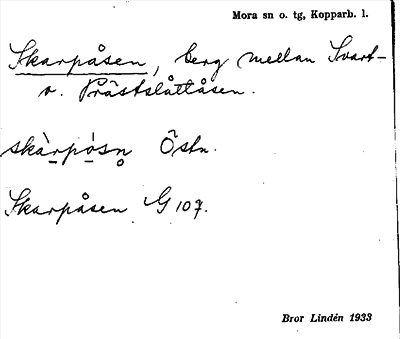 Mora sn o. tg, Kopparb. l.
Skarpåsen, berg mellan Svart-
o. Prästslåttåsen.
skàrpósn Östn.
Skarpåsen G 107.
Bror Lindén 1933